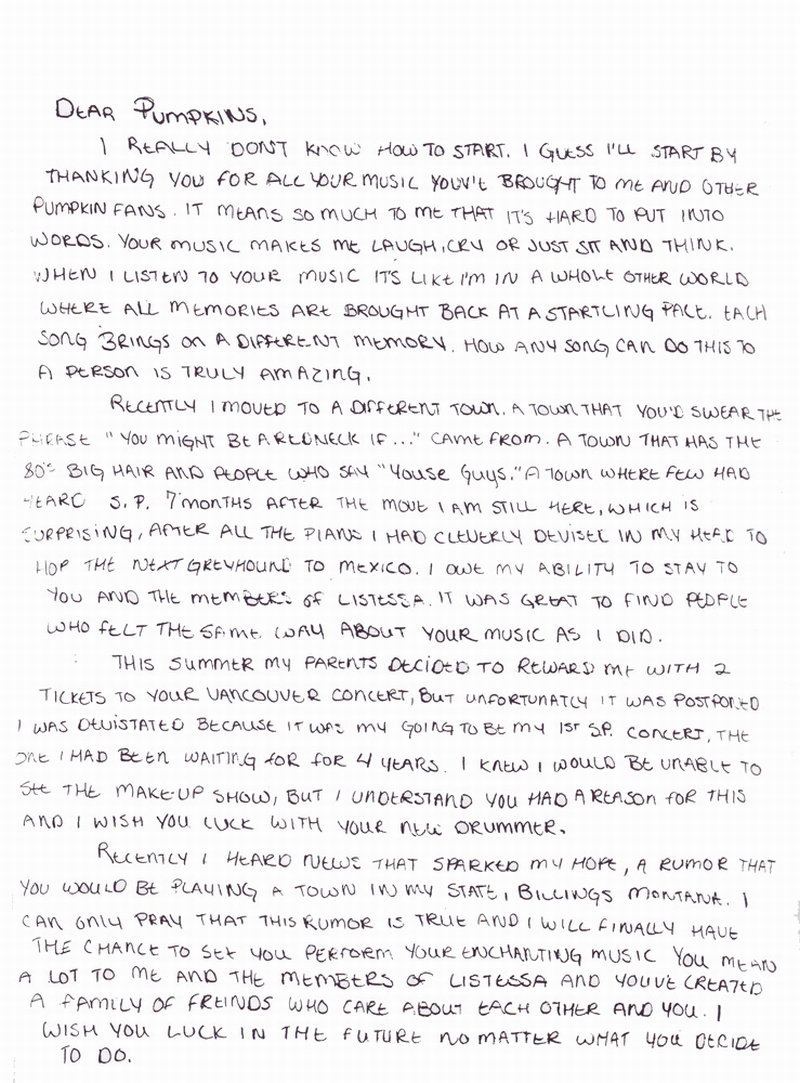 DEAR PUMPKINS,
I REALLY DON'T KNOW HOW TO START. I GUESS I'LL START BY
THANKING YOU FOR ALL YOUR MUSIC YOUV'E BROUGHT TO ME AND OTHER
PUMPKIN FANS. IT MEANS SO MUCH TO ME THAT IT'S HARD TO PUT INTO
WORDS. YOUR MUSIC MAKES ME LAUGH, CRY OR JUST SIT AND THINK.
WHEN I LISTEN TO YOUR MUSIC IT'S LIKE I'M IN A WHOLE OTHER WORLD
WHERE ALL MEMORIES ARE BROUGHT BACK AT A STARTLING PACE. EACH
SONG BRINGS ON A DIFFERENT MEMORY. HOW ANY SONG CAN DO THIS TO
A PERSON IS TRULY AMAZING.
RECENTLY I MOVED TO A DIFFERENT TOWN. A TOWN THAT YOU'D SWEAR THE
PHREASE "YOU MIGHT BE A REDNECK IF..." CAME FROM. A TOWN THAT HAS THE
80'S BIG HAIR AND PEOPLE WHO SAY "YOUSE GUYS." A TOWN WHERE FEW HAD
HEARD S.P. 7 MONTHS AFTER THE MOVE I AM STILL HERE, WHICH IS
SURPRISING, AFTER ALL THE PLANS I HAD CLEVERLY DEVISED IN MY HEAD TO
HOP THE NEXT GREYHOUND TO MEXICO. I OWE MY ABILITY TO STAY TO
YOU AND THE MEMBERS OF LISTESSA. IT WAS GREAT TO FIND PEOPLE
WHO FELT THE SAME WAY ABOUT YOUR MUSIC AS I DID.
THIS SUMMER MY PARENTS DECIDED TO REWARD ME WITH 2
TICKETS TO YOUR VANCOUVER CONCERT, BUT UNFORTUNATLY IT WAS POSTPONED
I WAS DEVISTATED BECAUSE IT WAS MY GOING TO BE MY 1ST SP. CONCERT, THE
ONE I HAD BEEN WAITING FOR FOR 4 YEARS. I KNEW I WOULD BE UNABLE TO
SEE THE MAKE-UP SHOW, BUT I UNDERSTAND YOU HAD A REASON FOR THIS
AND I WISH YOU LUCK WITH YOUR NEW DRUMMER.
RECENTLY I HEARD NEWS THAT SPARKED MY HOPE, A RUMOR THAT
YOU WOULD BE PLAYING A TOWN IN MY STATE, BILLINGS MONTANA. I
CAN ONLY PRAY THAT THIS RUMOR IS TRUE AND I WILL FINALLY HAVE
THE CHANCE TO SEE YOU PERFORM YOUR ENCHANTING MUSIC YOU MEAN
A LOT TO ME AND THE MEMBERS OF LISTESSA AND YOUVE CREATED
A FAMILY OF FREINDS WHO CARE ABOUT EACH OTHER AND YOU. I
WISH YOU LUCK IN THE FUTURE NO MATTER WHAT YOU DECIDE
TO DO.